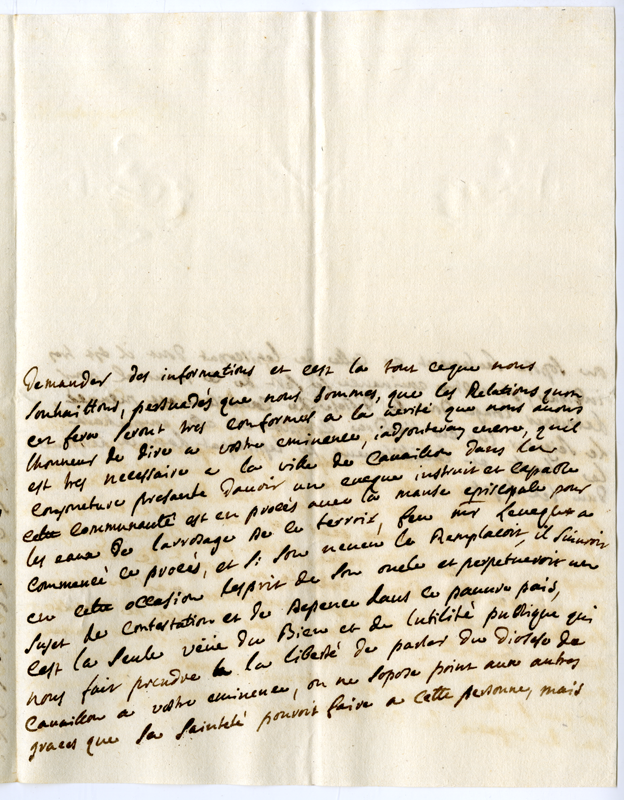 Demander des informations et cest la tout ceque nous
souhaittons, persuadés que nous sommes, que les Relations quon
en fera seront tres conformes a la verité que nous auons
lhonneur de dire a vostre eminence, iadjouteray encore, quil
est tres necessaire a la ville de Cauaillon dans la
conjoncture presante dauoir un eueque instruit et capable
cette communauté est en procés auec la manse episcopale pour
les eaux de larrosage de ce terroir, feu mr leueque a
commencé ce procés, et si son neueu le Remplacoit, il suiuroit
en cette occasion lesprit de son oncle et perpetueroit un
sujet de contestation et de depence dans ce pauure païs,
cest la seule veüe du Bien et de lutilité publique qui
nous fait prendre la liberté de parler du diocese de
Cauaillon a vostre eminence, on ne sopose point aux autres
graces que sa Sainteté pouroit faire a cette personne, mais